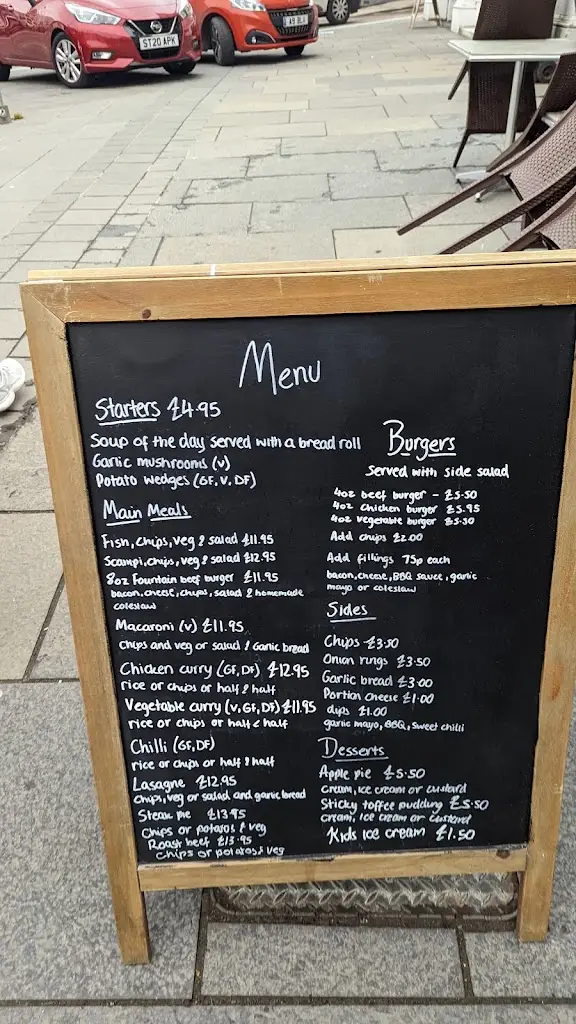 ST20 APK
Menu
Starters £4.95
Soup of the day served with a bread roll
Garlic mushrooms (v)
Potato wedges (GF, V, DF)
Main Meals
Fish, chips, veg & salad £11.95
Scampi, chips, veg & salad £12.95
8oz Fountain beef burger £11.95
bacon, cheese, chips, salad & homemade
coleslaw
Macaroni (v) £11.95
Chips and veg or salad & Garlic bread
Chicken curry (GF, DF) £12.95
rice or chips or half & half
Vegetable curry (v, GF, DF) £11.95
rice or chips or half & half
Chilli (GF, DF)
rice or chips or half & half
Lasagne £12.95
Chips, veg or salad and garlic bread
Steak pie £13.95
Chips or potatos & veg
Roast beef £13.95
Chips or potatos & veg
Burgers
served with side salad
4oz beef burger - £5.50
4oz chicken burger £5.95
4oz vegetable burger £5.50
Add chips £2.00
Add fillings 75p each
bacon, cheese, BBQ sauce, garlic
mayo or coleslaw
Sides
Chips £3.50
Onion rings £3.50
Garlic bread £3.00
Portion cheese £1.00
dips £1.00
garlic mayo, BBQ, sweet chilli
Desserts
Apple pie £5.50
cream, ice cream or custard
Sticky toffee pudding £5.50
cream, ice cream or custard
Kids ice cream £1.50